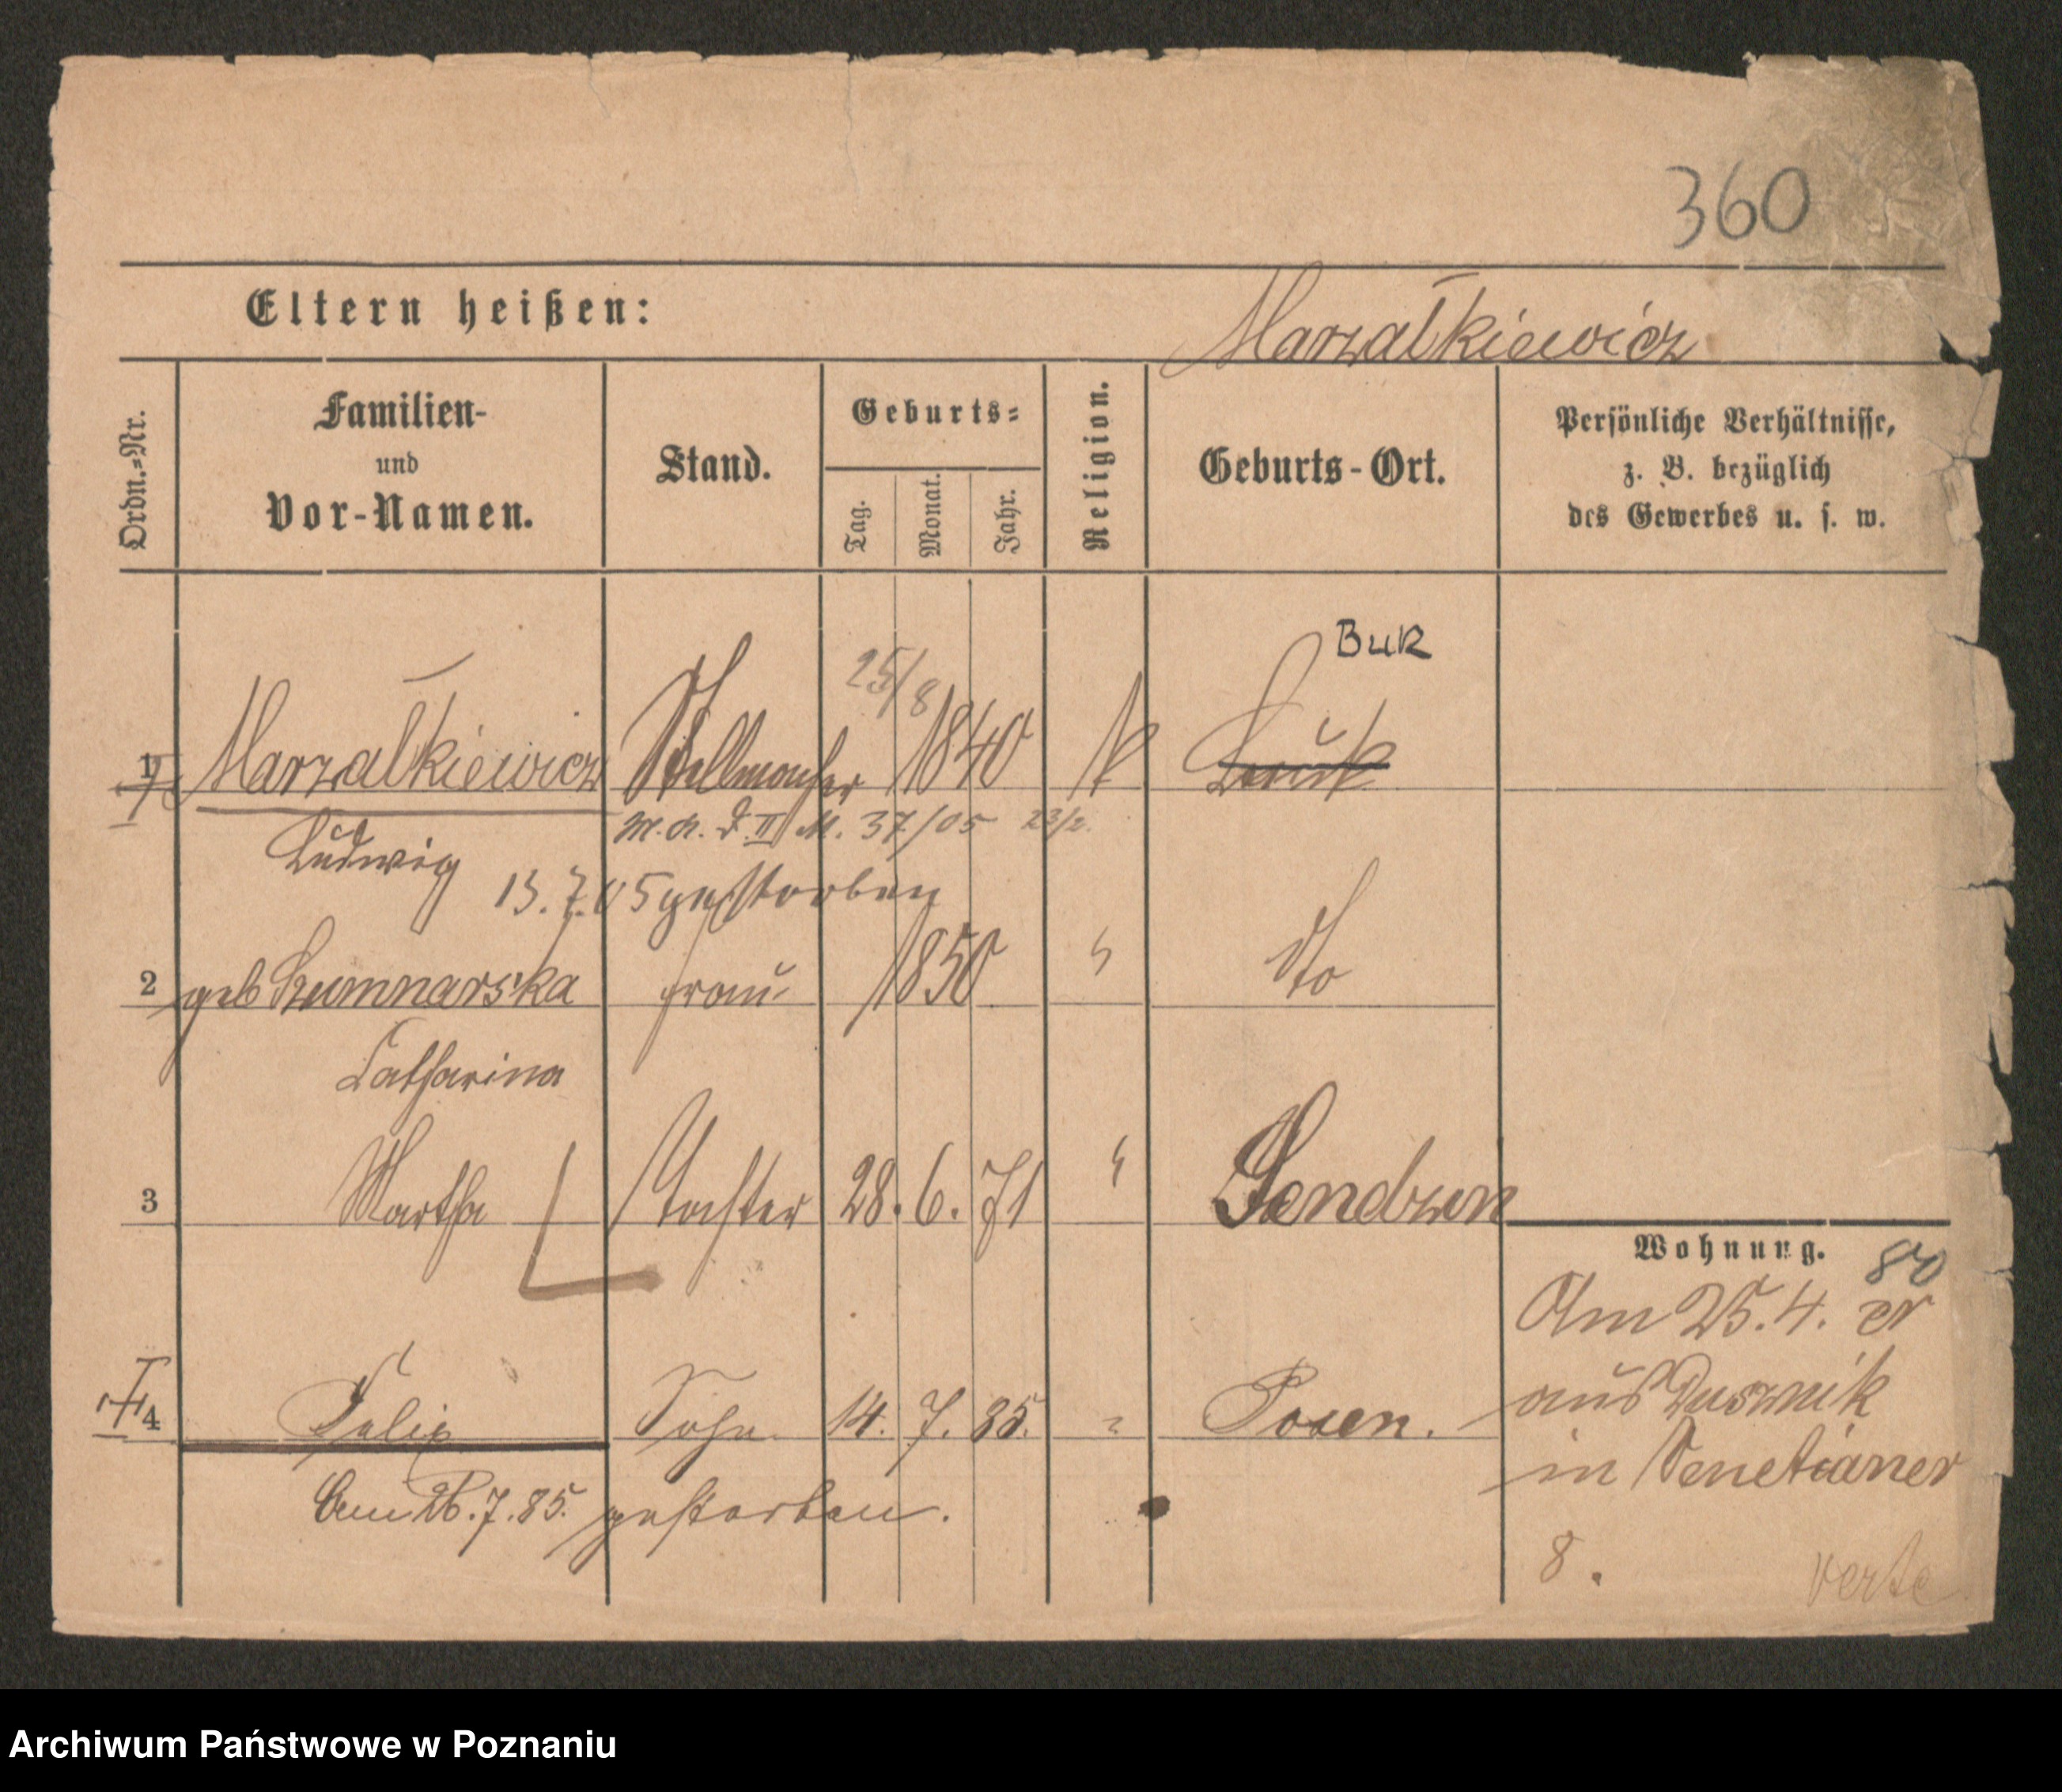 360
Eltern heißen:
Marzałkiewicz
Ordn.=Nr.
Familien-
und
Vor-Namen.
Stand.
Geburts=
Tag.
Monat.
Jahr.
Religion.
Geburts-Ort.
Persönliche Verhältnisse,
z. B. bezüglich
des Gewerbes u. s. w.
Buk
1 Marzałkiewicz Stellmacher 25/8 1840 k
Ludwig
M. 37/05 23/2.
13.7.05 gestorben
2 geb Szumnarska Frau 1850 " dto
Catharina
3 Martha Tochter 28. 6. 71 " Sendzin
4 Felix Sohn 14. 7. 85. " Posen.
Am 26.7.85. gestorben.
Wohnung.
80
Am 25.4. cr
aus Dusznik
in Venetianer
8.
verte
Archiwum Państwowe w Poznaniu